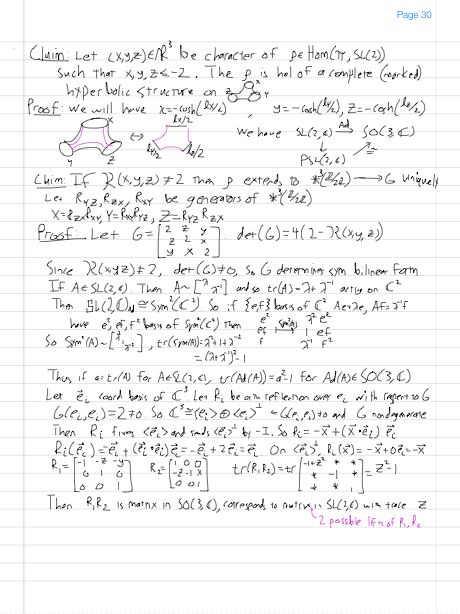 Page 30
Claim: Let (x,y,z)∈ℝ³ be character of ρ∈Hom(π, SL(2))
such that x,y,z≤-2. The ρ is hol of a complete (marked)
hyperbolic structure on z x y
Proof: We will have x=-cosh(lx/2), y=-cosh(ly/2), z=-cosh(lz/2)
x y z ⇔ lx/2 ly/2 lz/2 We have SL(2,ℂ) Ad→ SO(3,ℂ)
↓
PSL(2,ℂ)
Claim: If K(x,y,z)≠2 Then ρ extends to *³(ℤ/2ℤ) → G Uniquely
Let R_YZ, R_ZX, R_XY be generators of *³(ℤ/2ℤ)
X=R_ZX R_XY, Y=R_XY R_YZ, Z=R_YZ R_ZX
Proof: Let G=[2 z y
z 2 x
y x 2]. det(G)=4(2-K(x,y,z))
Since K(x,y,z)≠2, det(G)≠0, so G determines sym bilinear form
If A∈SL(2,ℂ), Then A~[λ λ⁻¹] and so tr(A)=λ+λ⁻¹ acting on ℂ²
Then SL(2,ℂ) ≅ Sym²(ℂ²) So if {e,f} basis of ℂ² Ae=λe, Af=λ⁻¹f
have e², ef, f² basis of Sym²(ℂ²) Then e² λ² e²
ef Sym²(A) 1 ef
f λ⁻² f²
So Sym²(A)~[λ² 1 λ⁻²], tr(Sym²(A))=λ²+1+λ⁻²
=(λ+λ⁻¹)²-1
Thus if a=tr(A) for A∈SL(2,ℂ), tr(Ad(A))=a²-1 for Ad(A)∈SO(3,ℂ)
Let e⃗ᵢ coord basis of ℂ³. Let Rᵢ be our reflection over eᵢ with respect to G
G(eᵢ,eᵢ)=2≠0. So ℂ³≅⟨eᵢ⟩⊕⟨eᵢ⟩^⊥ G(eᵢ,eᵢ)≠0 and G nondegenerate
Then Rᵢ fixes ⟨e⃗ᵢ⟩ and sends ⟨e⃗ᵢ⟩^⊥ by -I. So Rᵢ=-x⃗+(x⃗·e⃗ᵢ)e⃗ᵢ
Rᵢ(e⃗ᵢ)=-e⃗ᵢ+(e⃗ᵢ·e⃗ᵢ)e⃗ᵢ=-e⃗ᵢ+2e⃗ᵢ=e⃗ᵢ. On ⟨e⃗ᵢ⟩^⊥, Rᵢ(x⃗)=-x⃗+0e⃗ᵢ=-x⃗
R₁=[-1 -z -y
0 1 0
0 0 1] R₂=[1 0 0
-z -1 x
0 0 1] tr(R₁R₂)=tr[-1+z² * *
* -1 *
* * 1]=z²-1
Then R₁R₂ is matrix in SO(3,ℂ), corresponds to matrix in SL(2,ℂ) with trace z
2 possible lifts of R₁R₂